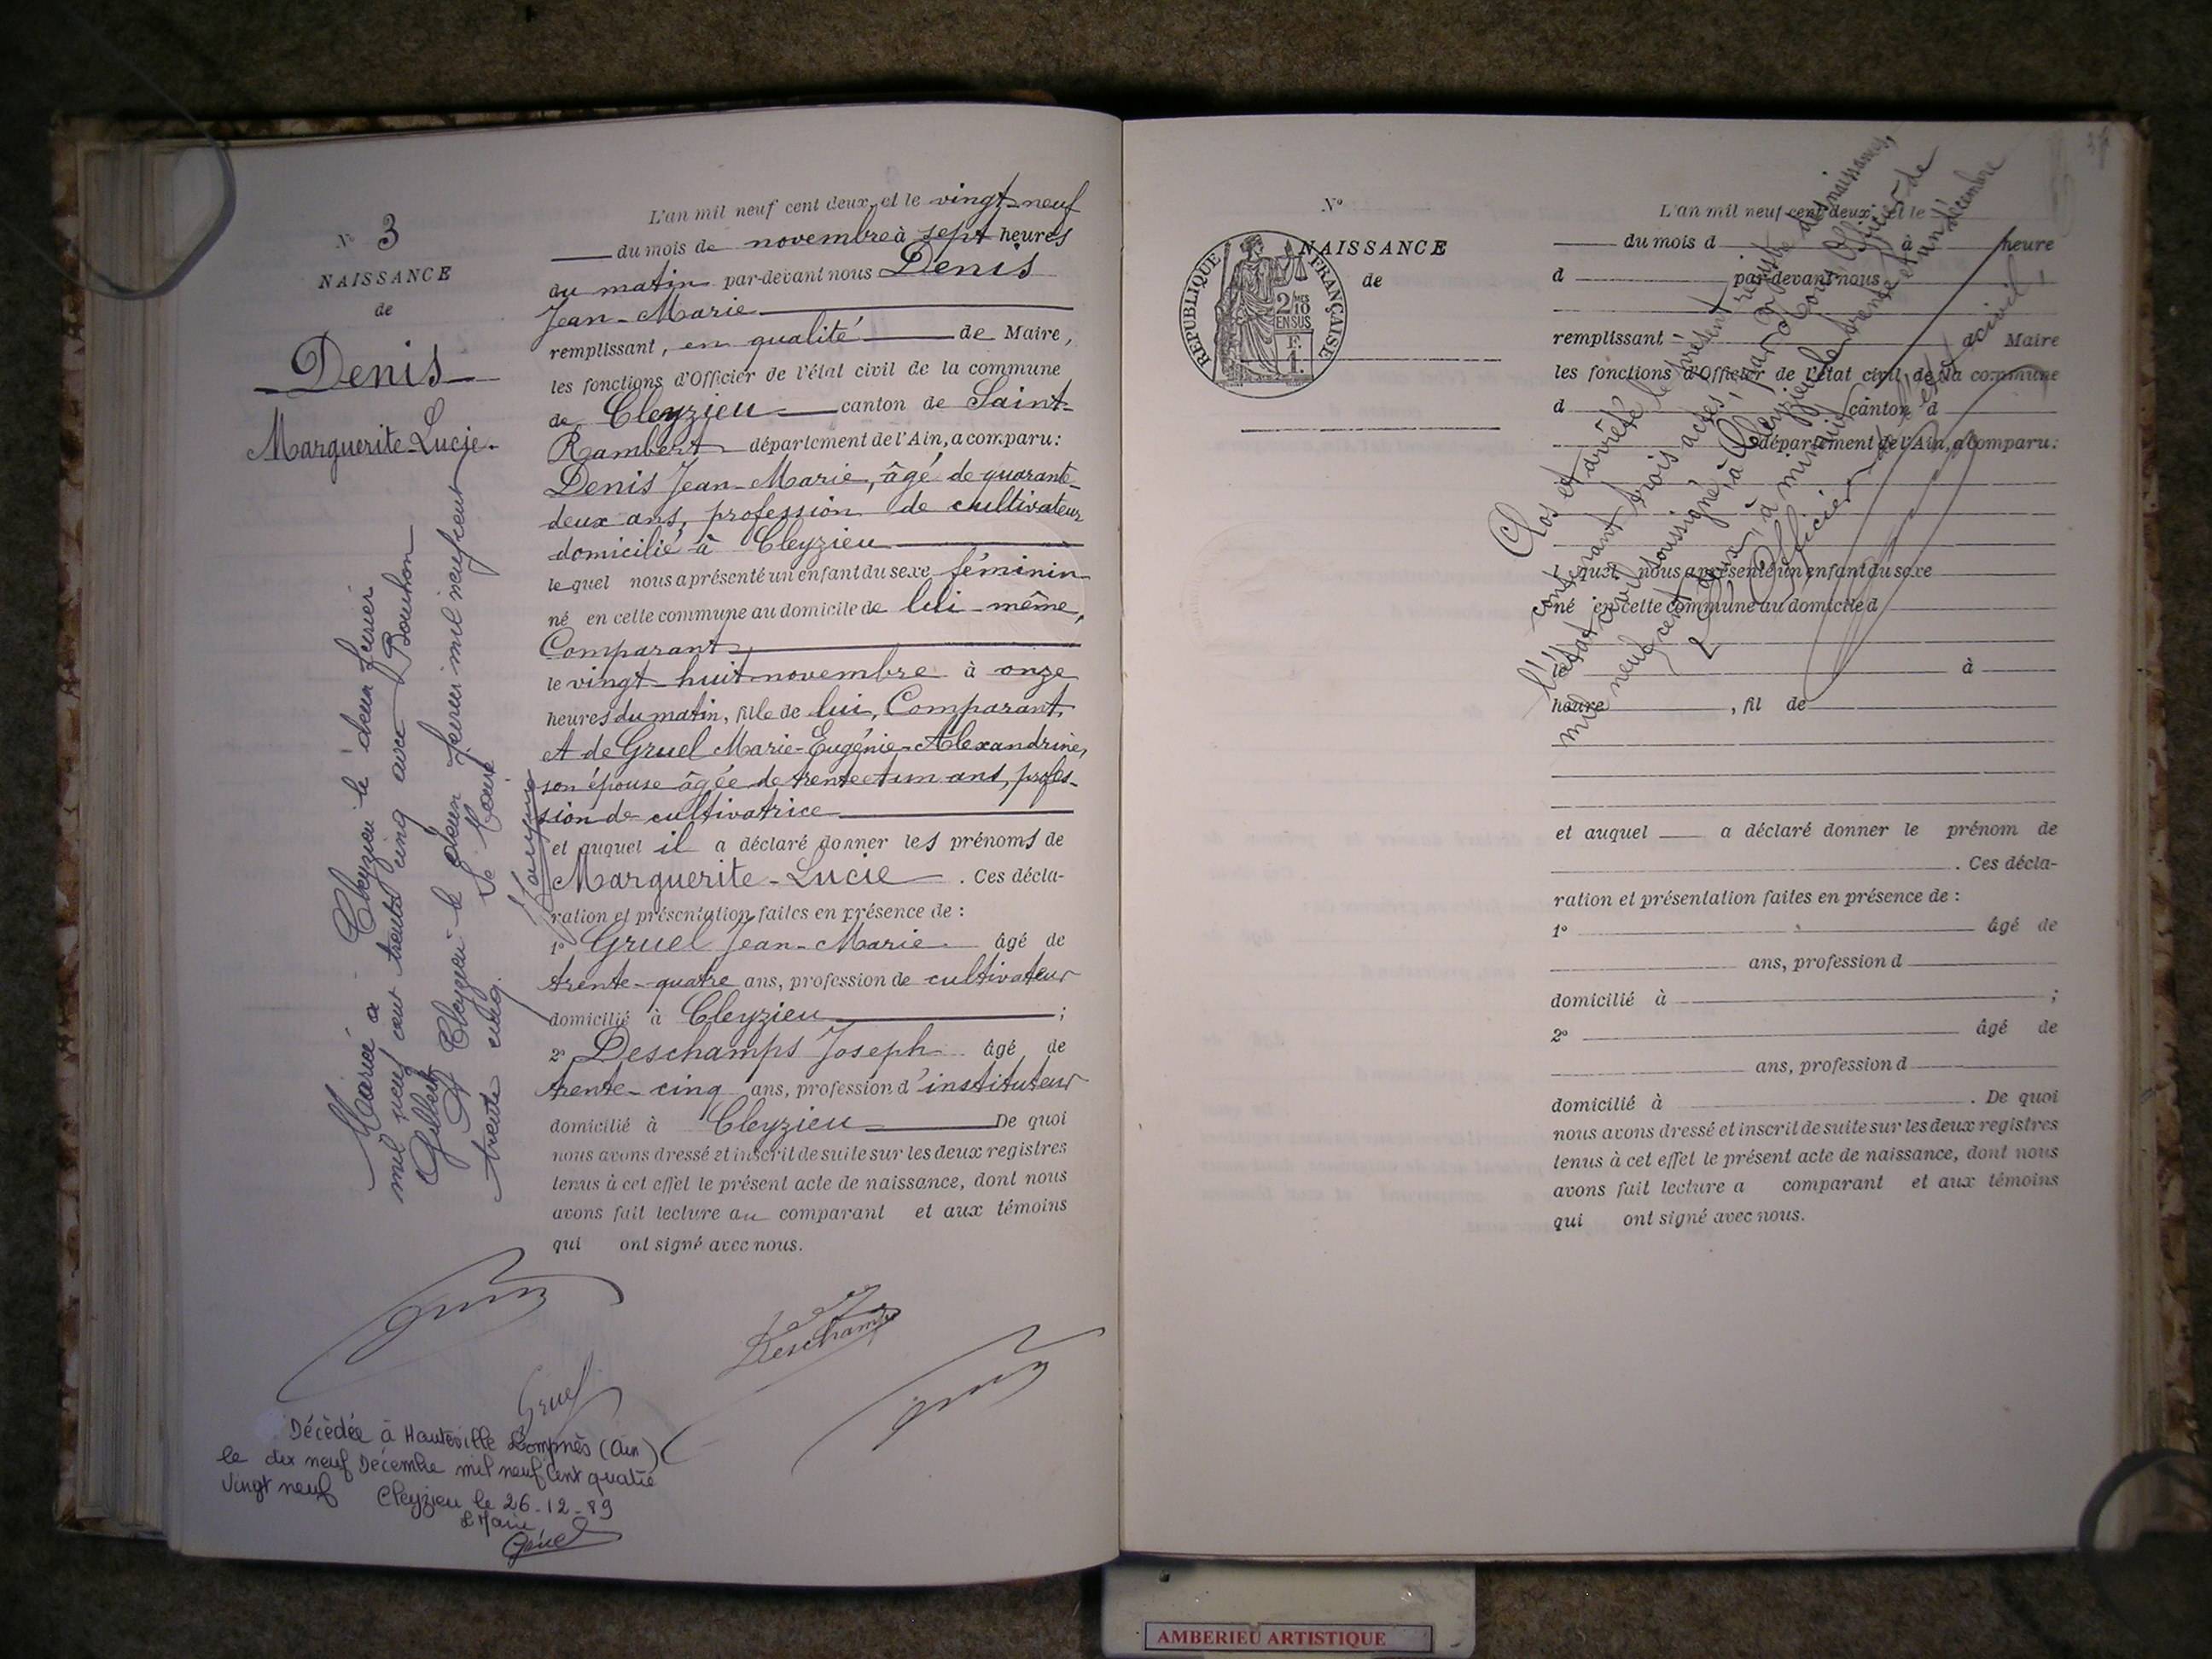 N° 3
NAISSANCE
de
Denis
Marguerite-Lucie.
L'an mil neuf cent deux, et le vingt-neuf
du mois de novembre à sept heures
du matin par-devant nous Denis
Jean-Marie
remplissant, en qualité de Maire,
les fonctions d'Officier de l'état civil de la commune
de Cleyzieu canton de Saint-
Rambert département de l'Ain, a comparu:
Denis Jean-Marie, âgé de quarante-
deux ans, profession de cultivateur
domicilié à Cleyzieu
lequel nous a présenté un enfant du sexe féminin
né en cette commune au domicile de lui-même,
Comparant
le vingt-huit novembre à onze
heures du matin, fille de lui, Comparant,
et de Gruel Marie-Eugénie-Alexandrine,
son épouse âgée de trente et un ans, profes-
sion de cultivatrice
et auquel il a déclaré donner les prénoms de
Marguerite-Lucie. Ces décla-
ration et présentation faites en présence de :
1° Gruel Jean-Marie âgé de
trente-quatre ans, profession de cultivateur
domicilié à Cleyzieu ;
2° Deschamps Joseph âgé de
trente-cinq ans, profession d'instituteur
domicilié à Cleyzieu De quoi
nous avons dressé et inscrit de suite sur les deux registres
tenus à cet effet le présent acte de naissance, dont nous
avons fait lecture au comparant et aux témoins
qui ont signé avec nous.
Mariée à Cleyzieu le deux février
mil neuf cent trente cinq avec Bouchon
Gilbert
A Cleyzieu le deux février mil neuf cent
trente cinq. Le Maire
Deschamps
Gruel
Décédée à Hauteville Lompnès (Ain)
le dix neuf Décembre mil neuf Cent quatre
Vingt neuf Cleyzieu le 26-12-89
Le Maire
Gruel
37
N°
NAISSANCE
de
REPUBLIQUE FRANÇAISE
2/10 MES
EN SUS
F.
1.
L'an mil neuf cent deux, et le
du mois d à heure
d par-devant nous
remplissant d Maire
les fonctions d'Officier de l'état civil de la commune
d canton d
département de l'Ain, a comparu:
quel nous a présenté un enfant du sexe
né en cette commune au domicile d
le à
heure , fil de
et auquel a déclaré donner le prénom de
. Ces décla-
ration et présentation faites en présence de :
1° âgé de
ans, profession d
domicilié à ;
2° âgé de
ans, profession d
domicilié à . De quoi
nous avons dressé et inscrit de suite sur les deux registres
tenus à cet effet le présent acte de naissance, dont nous
avons fait lecture a comparant et aux témoins
qui ont signé avec nous.
Clos et arrêté le présent registre des naissances,
contenant trois actes, par nous Officier de
l'état civil soussigné, à Cleyzieu le trente et un décembre
mil neuf cent deux, à minuit.
L'Officier de l'état civil,
AMBERIEU ARTISTIQUE